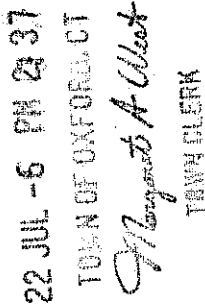 22 JUL -6 PM 2:37
TOWN OF OXFORD, CT
Margaret A West
TOWN CLERK